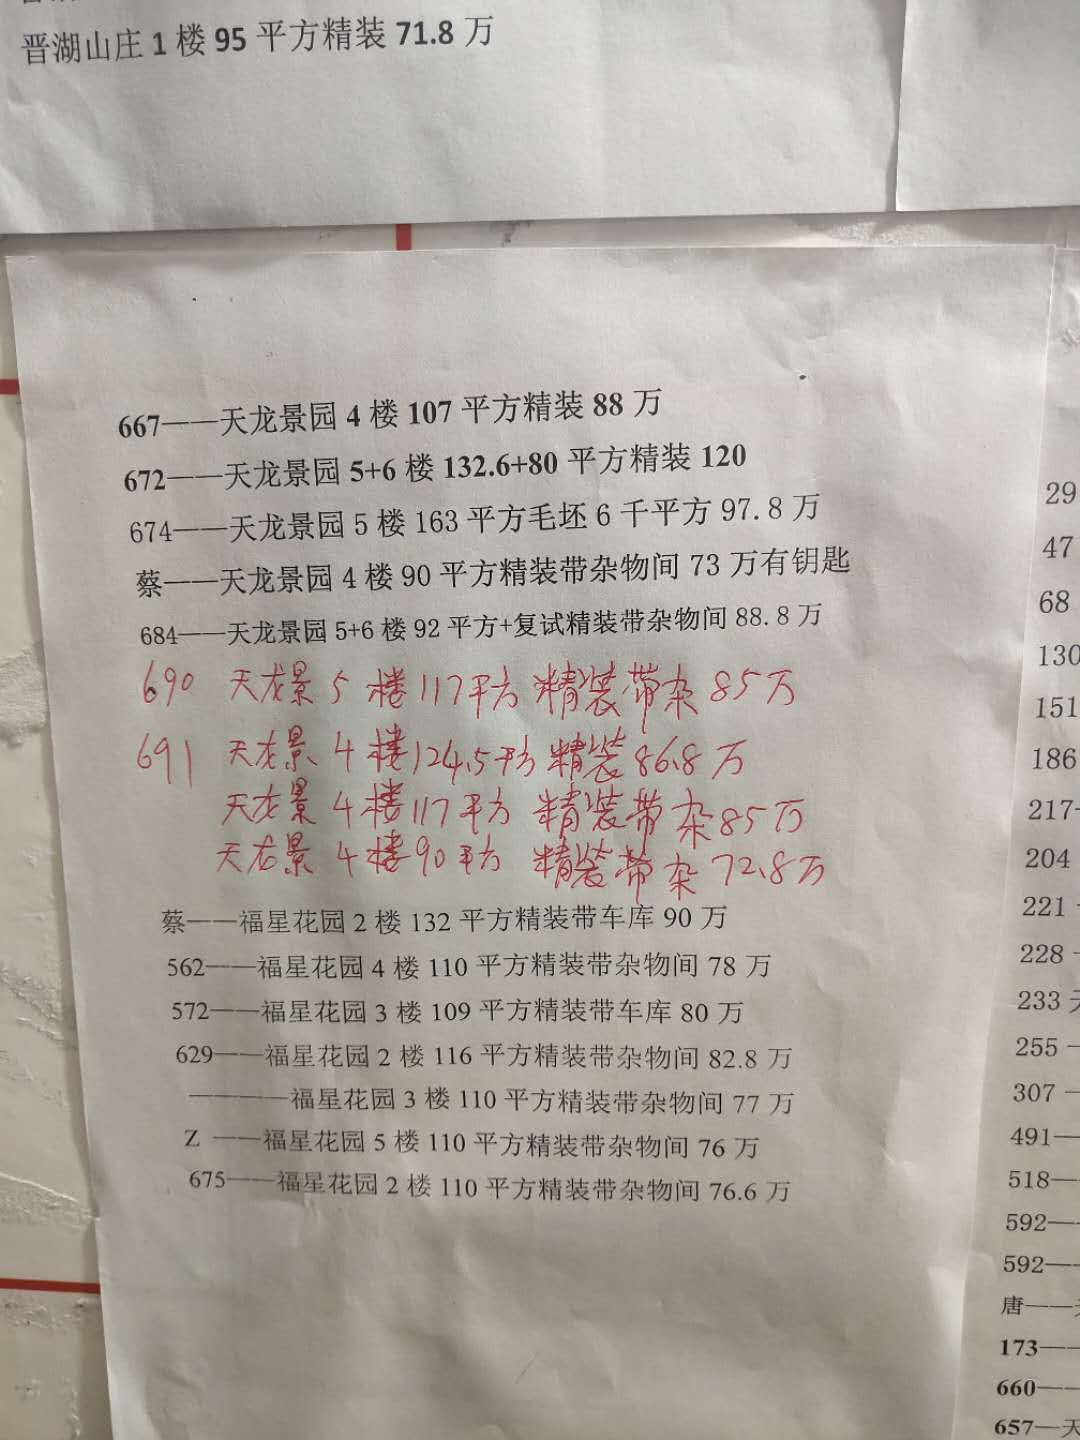 晋湖山庄 1 楼 95 平方精装 71.8 万
667——天龙景园 4 楼 107 平方精装 88 万
672——天龙景园 5+6 楼 132.6+80 平方精装 120
674——天龙景园 5 楼 163 平方毛坯 6 千平方 97.8 万
蔡——天龙景园 4 楼 90 平方精装带杂物间 73 万有钥匙
684——天龙景园 5+6 楼 92 平方+复试精装带杂物间 88.8 万
690 天龙景 5 楼 117平方 精装带杂 85万
691 天龙景 4 楼 124.5平方 精装 86.8 万
天龙景 4 楼 117平方 精装带杂 85万
天龙景 4 楼 90平方 精装带杂 72.8万
蔡——福星花园 2 楼 132 平方精装带车库 90 万
562——福星花园 4 楼 110 平方精装带杂物间 78 万
572——福星花园 3 楼 109 平方精装带车库 80 万
629——福星花园 2 楼 116 平方精装带杂物间 82.8 万
————福星花园 3 楼 110 平方精装带杂物间 77 万
Z ——福星花园 5 楼 110 平方精装带杂物间 76 万
675——福星花园 2 楼 110 平方精装带杂物间 76.6 万
29
47
68
130
151
186
217
204
221
228
233
255
307
491—
518—
592—
592—
唐——
173—
660—
657—天